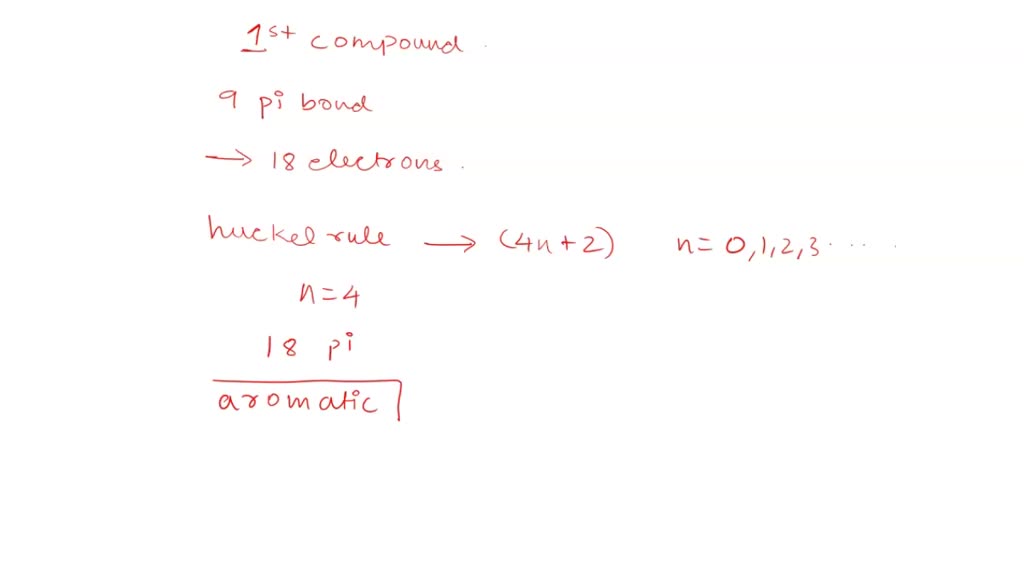 1st compound
9 pi bond
→ 18 electrons.
huckel rule → (4n+2) n= 0,1,2,3....
n=4
18 pi
aromatic